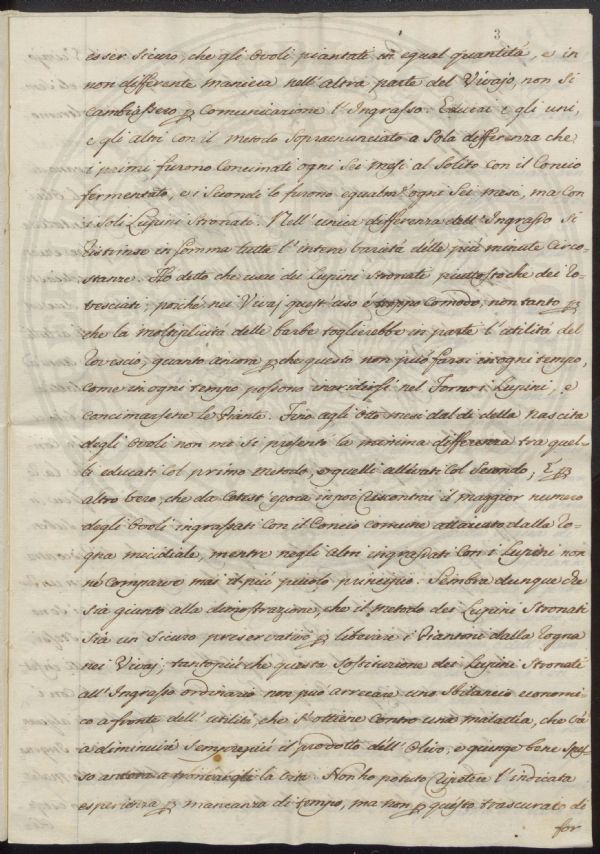 3
esser sicuro, che gli Ovoli piantati in equal quantità, e in
non differente maniera nell'altra parte del Vivajo, non si
cambiassero p comunicazione l'Ingrasso. Educai e gli uni,
e gli altri con il metodo sopraenunciato a sola differenza che
i primi furono concimati ogni sei mesi al solito con il Concio
fermentato, e i secondi lo furono equalm. ogni sei mesi, ma con
i soli Lupini stronati. Nell'unica differenza dell'Ingrasso si
ristrinse in somma tutta l'intera varietà delle più minute circo-
stanze. Ho detto che usai dei Lupini stronati piuttosto che dei ro-
vesciati, poichè nei Vivaj quest'uso è troppo comodo, non tanto p
che la moltiplicità delle barbe toglierebbe in parte l'utilità del
rovescio, quanto ancora p che questo non può farsi in ogni tempo,
come in ogni tempo possono inaridirsi nel Forno i Lupini, e
concimarsene le Piante. Fino agli otto mesi dal dì della nascita
degli Ovoli non mi si presentò la minima differenza tra quel-
li educati col primo metodo, e quelli allevati col secondo; È p
altro vero, che da cotest'epoca in poi riscontrai il maggior numero
degli Ovoli ingrassati con il Concio comune attaccato dalla Ro-
gna micidiale, mentre negli altri ingrassati con i Lupini non
ne comparve mai il più piccolo principio. Sembra dunque che
sia giunto alla dimostrazione, che il metodo dei Lupini stronati
sia un sicuro preservativo p liberare i Piantoni dalla Rogna
nei Vivaj; tantopiù che questa sostituzione dei Lupini stronati
all'Ingrasso ordinario non può arrecare uno sbilancio economi-
co a fronte dell'utilità, che s'ottiene contro una malattia, che và
a diminuire semprepiù il prodotto dell'Olivo, e giunge bene spes-
so ancora a troncargli la vita. Non ho potuto ripetere l'indicata
esperienza p mancanza di tempo, ma non p questo trascurai di
for